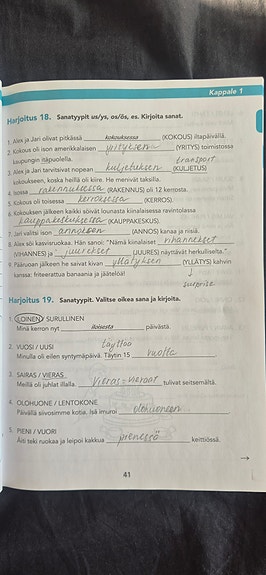 Kappale 1
Harjoitus 18. Sanatyypit us/ys, os/ös, es. Kirjoita sanat.
1. Alex ja Jari olivat pitkässä kokouksessa (KOKOUS) iltapäivällä.
2. Kokous oli ison amerikkalaisen yrityksen (YRITYS) toimistossa
kaupungin ulkopuolella. transport
3. Alex ja Jari tarvitsivat nopean kuljetuksen (KULJETUS)
kokoukseen, koska heillä oli kiire. He menivät taksilla.
4. Isossa rakennuksessa (RAKENNUS) oli 12 kerrosta.
5. Kokous oli toisessa kerroksessa (KERROS).
6. Kokouksen jälkeen kaikki söivät lounasta kiinalaisessa ravintolassa
kauppakeskuksessa (KAUPPAKESKUS).
7. Jari valitsi ison annoksen (ANNOS) kanaa ja riisiä.
8. Alex söi kasvisruokaa. Hän sanoi: "Nämä kiinalaiset vihannekset
(VIHANNES) ja juurekset (JUURES) näyttävät herkulliselta."
9. Pääruoan jälkeen he saivat kivan yllätyksen (YLLÄTYS) kahvin
kanssa: friteerattua banaania ja jäätelöä!
surprise
Harjoitus 19. Sanatyypit. Valitse oikea sana ja kirjoita.
1. ILOINEN / SURULLINEN
Minä kerron nyt iloisesta päivästä.
2. VUOSI / UUSI täyttää
Minulla oli eilen syntymäpäivä. Täytin 15 vuotta
3. SAIRAS / VIERAS
Meillä oli juhlat illalla. Vieras = vieraat tulivat seitsemältä.
4. OLOHUONE / LENTOKONE
Päivällä siivosimme kotia. Isä imuroi olohuoneen
5. PIENI / VUORI
Äiti teki ruokaa ja leipoi kakkua pienessä keittiössä.
→
41